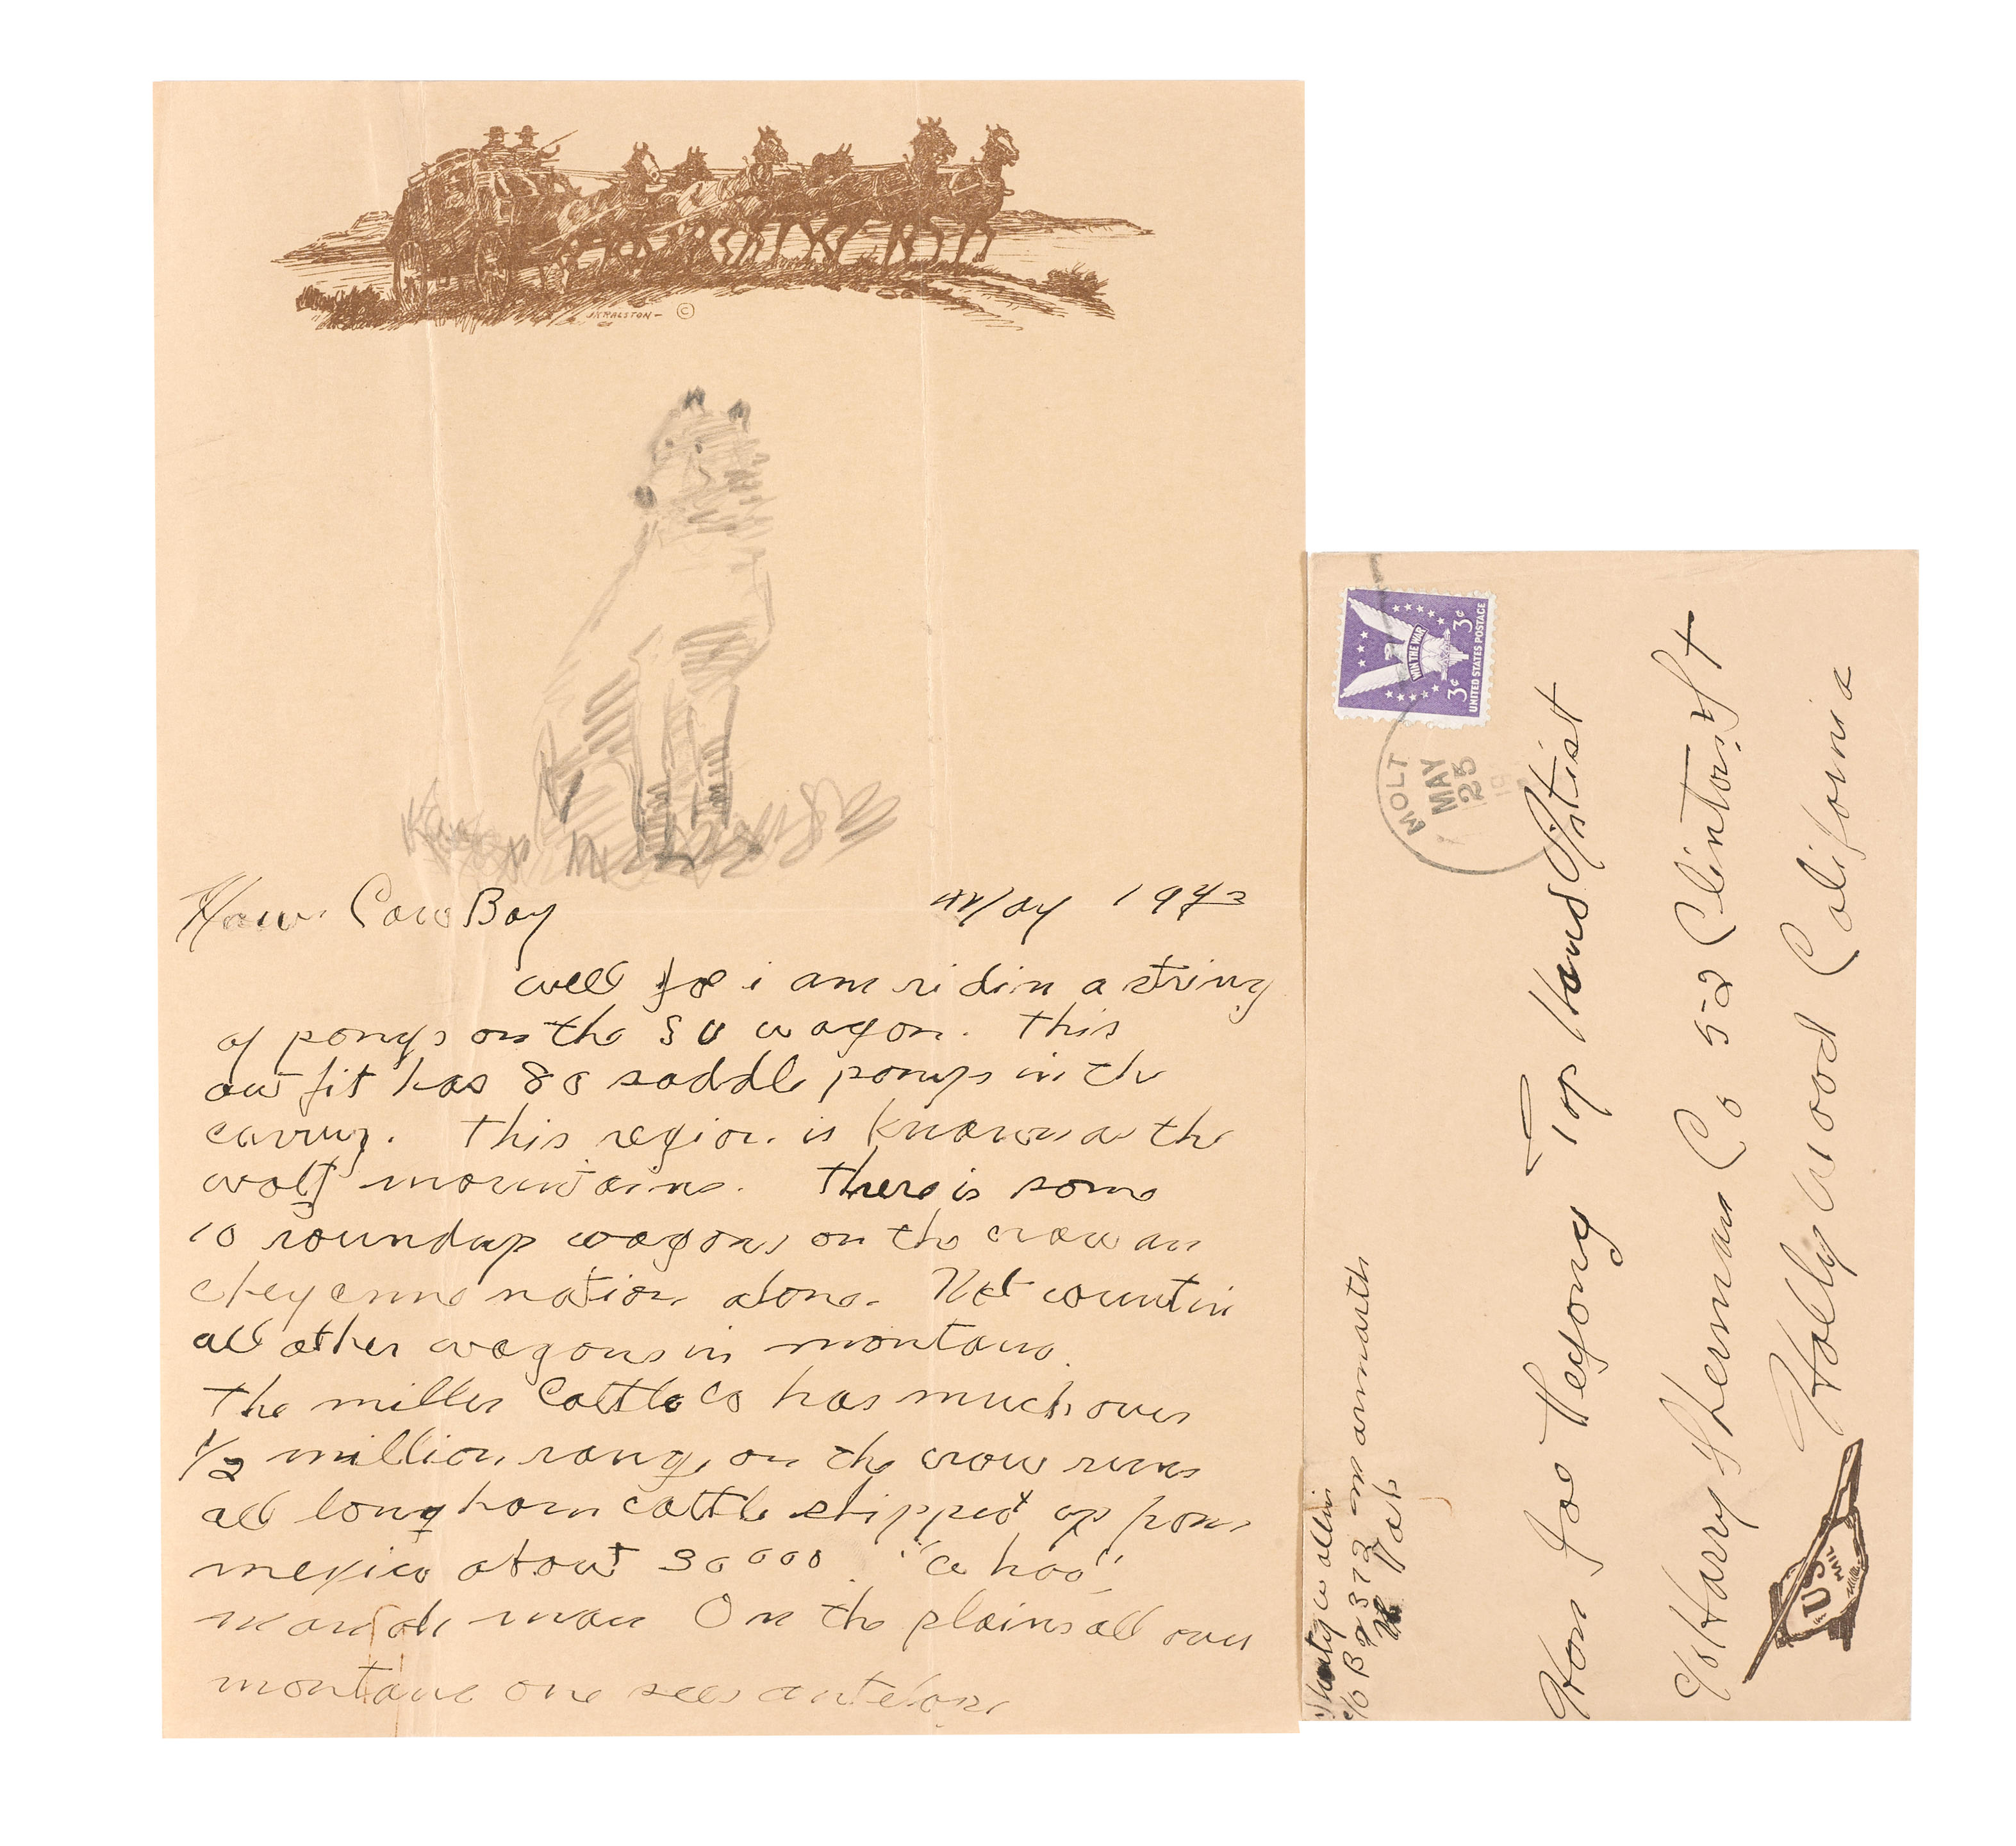 J.K. RALSTON- ©
Haw. CowBoy
May 1943
well Joe i am ridin a string
of ponys on the wagon. This
out fit has 80 saddle ponys in the
cavvy. This region is known as the
wolf mountains. There is some
10 roundup wagons on the crow an
cheyenne nation alone. Not countin
all other wagons in montana.
The miller Cattle Co has much over
1/2 million range on the crow runs
all long horn cattle shipped up from
mexico about 30000.
man On the plains all over
montana one sees antelope
3¢ WIN THE WAR 3¢
UNITED STATES POSTAGE
MOLT
MAY
25
19
Shorty allin
c/o B 2372 marmarth
N Dak
Hon Joe De Yong Top Hand Artist
c/o Harry Sherman Co 52 Clinton St
Hollywood California
US
MAIL